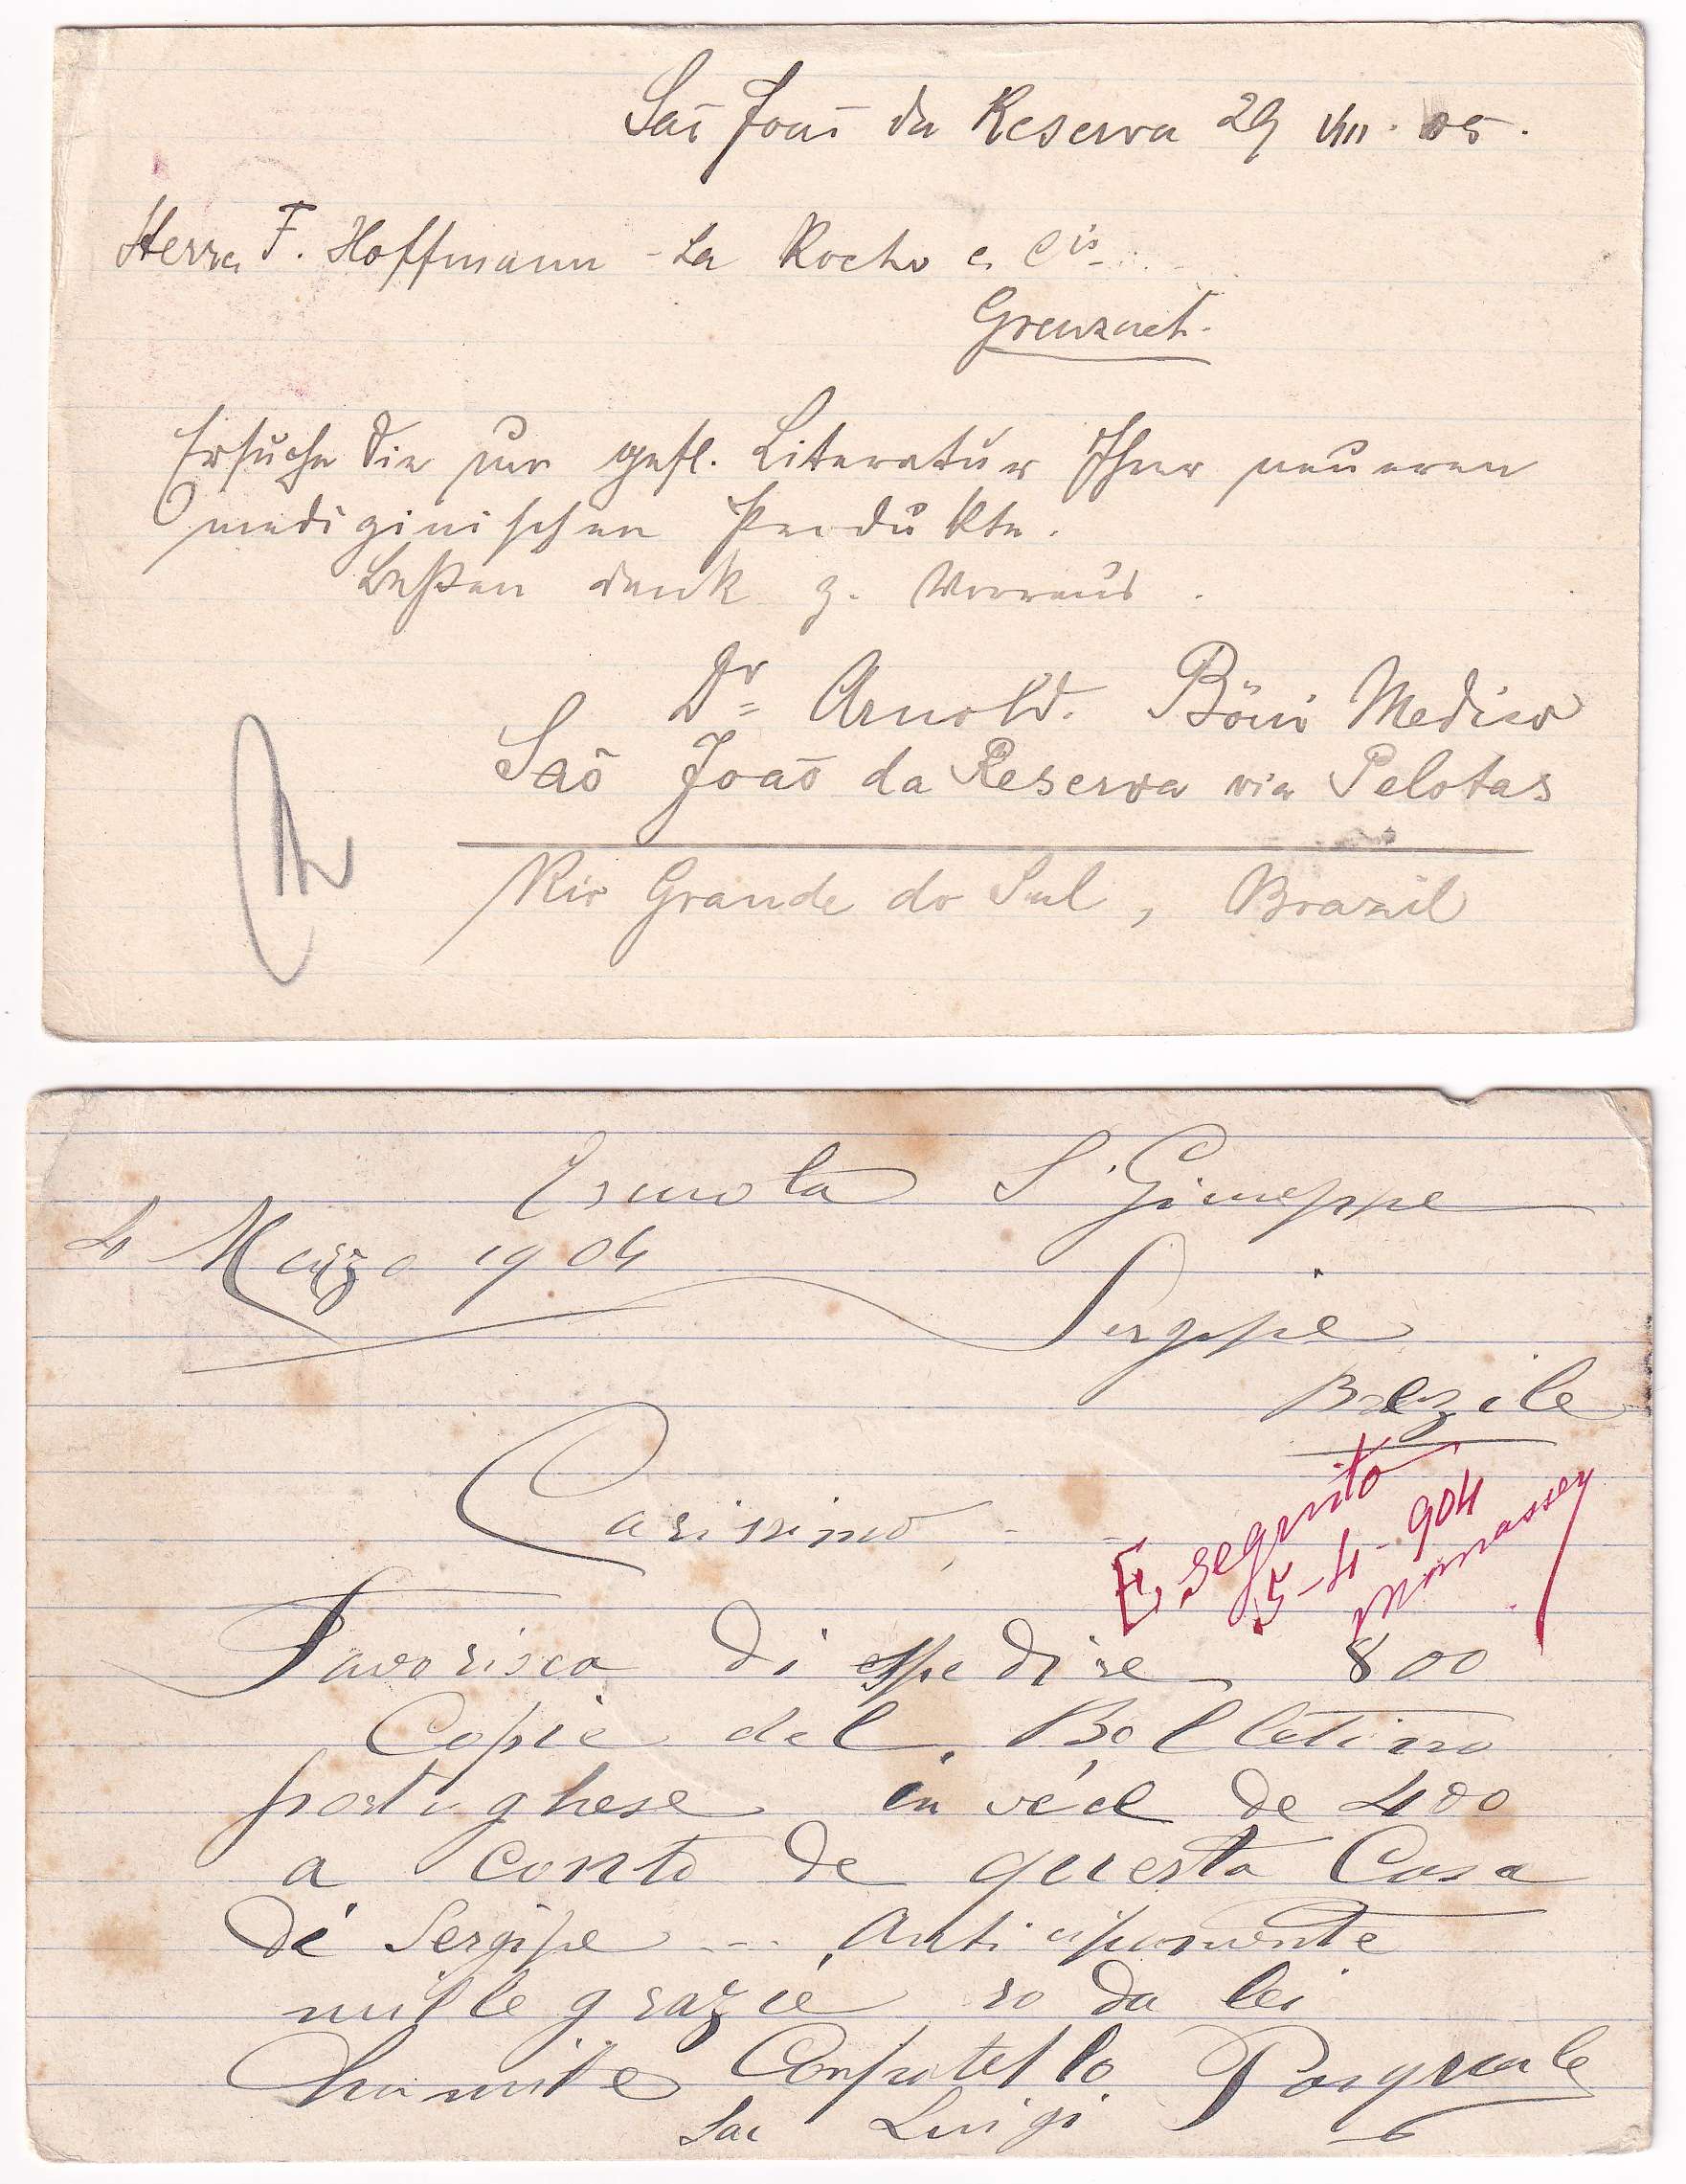 Saõ Joaõ da Reserva 29 VIII. 05.
Herren F. Hoffmann - La Roche e Cie
Grenzach.
Ersuche Sie um gefl. Literatur Ihrer neueren
medizinischen Produkte.
Besten Dank z. Voraus.
Dr Arnold. Böni Medico
Saõ Joaõ da Reserva via Pelotas
Rio Grande do Sul, Brazil
S. Giuseppe
4 Marzo 1904
Sergipe
Brazile
Carissimo
Eseguito
5-4-904
Favorisca di spedire 800
Copie del Bollettino
portughese in véce de 400
a conto de questa Casa
di Sergipe --- Anticipamente
mille grazie da lei
humile Confratello
Sac Luigi Pasquale